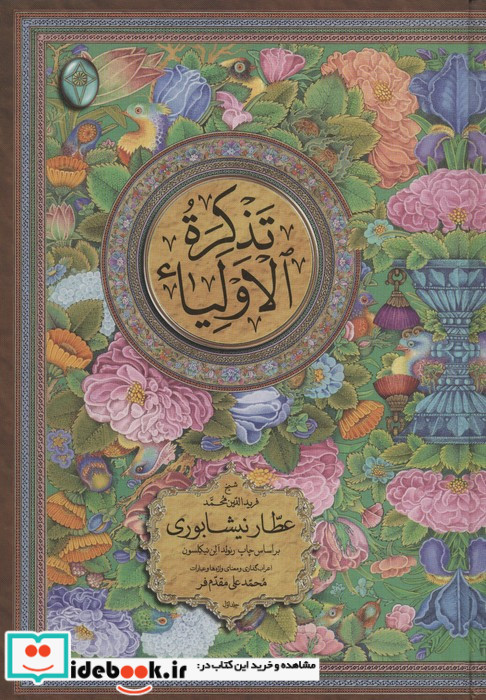 تَذکِرَةُ
الاَولیاء
شیخ
فریدالدین محمّد
عطّار نیشابوری
براساس چاپ رینولد الن نیکلسون
اعراب‌گذاری و معنای واژه‌ها و عبارات
محمّدعلی مقدّم‌فر
جلد اول
idebook.ir
مشاهده و خرید این کتاب در: